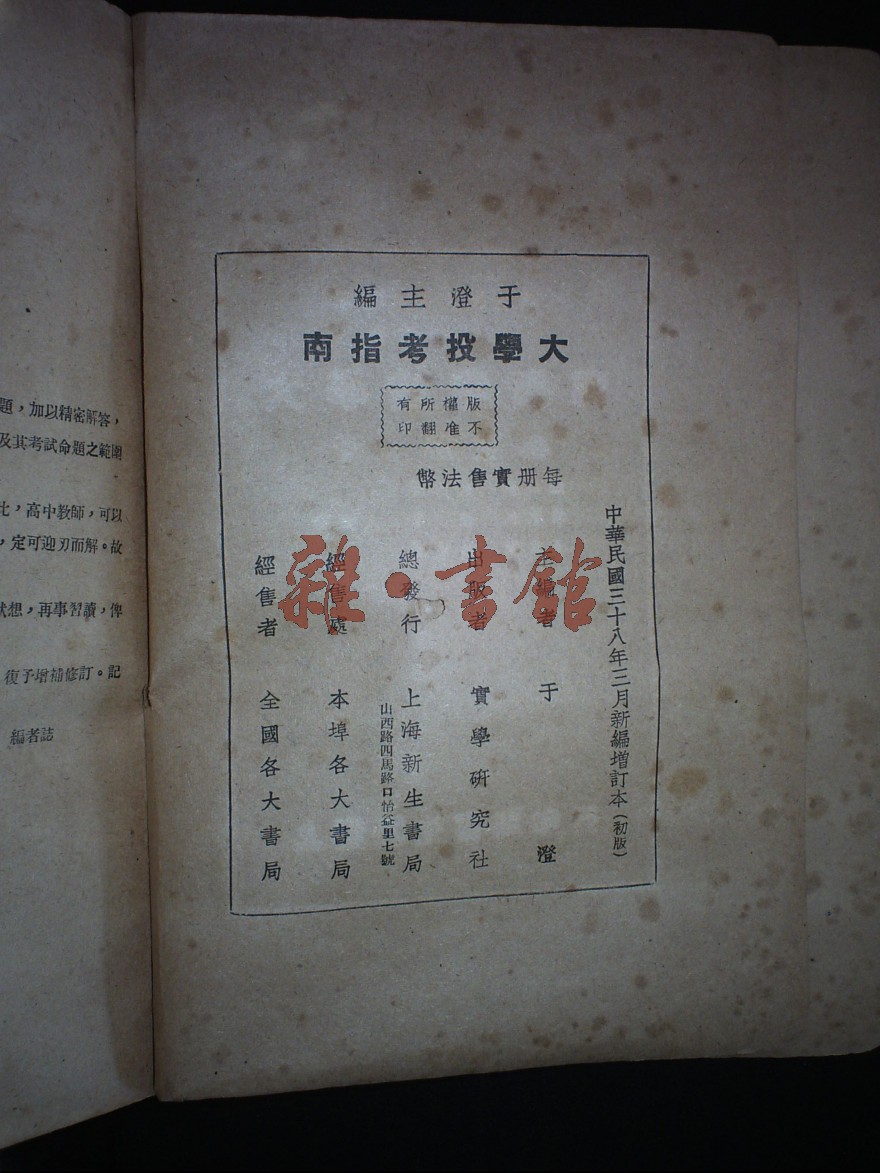 于澄主編
大學投考指南
版權所有
不准翻印
每册實售法幣
中華民國三十八年三月新編增訂本（初版）
主編者 于澄
出版者 實學研究社
總發行 上海新生書局
山西路四馬路口怡益里七號
經售處 本埠各大書局
經售者 全國各大書局
雜·書館
題，加以精密解答，
及其考試命題之範圍
比，高中教師，可以
，定可迎刃而解。故
狀想，再事習讀，俾
復予增補修訂。記
編者誌